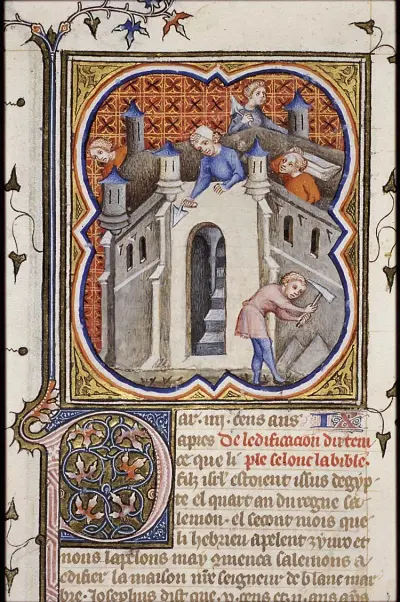 Par · iiij · cens ans IX
apres De ledificacion du tem
ce que li ple selonc la bible ·
filz isrl estoient issus degyp
te el quart an du regne sa
lemon · el secont mois que
li hebrieu apelent zynio et
nous lapelons may cmenca salemons a
edifier la maison nre seigneur de blanc mar
bre · Josephus dist que · v · cens et ans